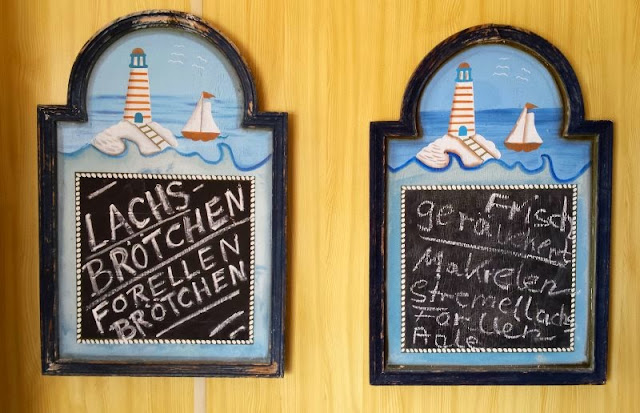 LACHS-
BRÖTCHEN
FORELLEN
BRÖTCHEN
Frisch
geräuchert
Makrelen
Stremellachs
Forllen
Aale